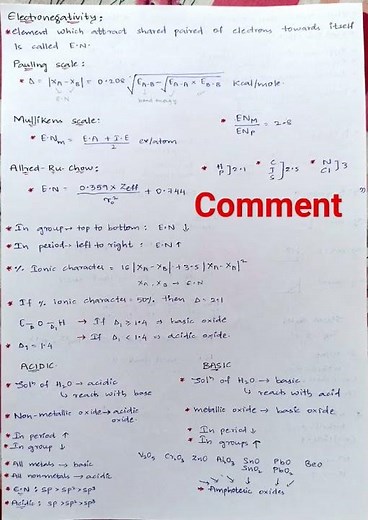 Electronegativity:
* element which attract shared paired of electrons towards itself
is called E·N·
Pauling scale:
* Δ = |XA - XB| = 0.208 √EA-B - √EA-A × EB-B Kcal/mole.
E·N bond energy
Mulliken scale:
* E·Nm = E·A + I·E / 2 ev/atom
* ENM / ENP = 2.8
Allred-Ru-Chow:
* E·N = 0.359 × Zeff / r² + 0.744
* H P ] 2.1 * C I S ] 2.5 * N Cl ] 3
Comment
* In group → top to bottom : E·N ↓
* In period → left to right : E·N ↑
* % Ionic character = 16 |XA - XB| + 3.5 |XA - XB|²
XA, XB → E·N
* If % ionic character = 50% then Δ = 2.1
E-O-H → If Δ1 > 1.4 → basic oxide
→ If Δ1 < 1.4 → acidic oxide
* Δ = 1.4
ACIDIC
* Solⁿ of H2O → acidic
↳ reacts with base
* Non-metallic oxide → acidic
oxide
* In period ↑
* In group ↓
* All metals → basic
* All nonmetals → acidic
* E·N : sp > sp² > sp³
* Acidic : sp > sp² > sp³
BASIC
* Solⁿ of H2O → basic
↳ reacts with acid
* metallic oxide → basic oxide
* In period ↓
* In groups ↑
V2O5 Cr2O3 ZnO Al2O3 SnO PbO BeO
SnO2 PbO2
Amphoteric oxides